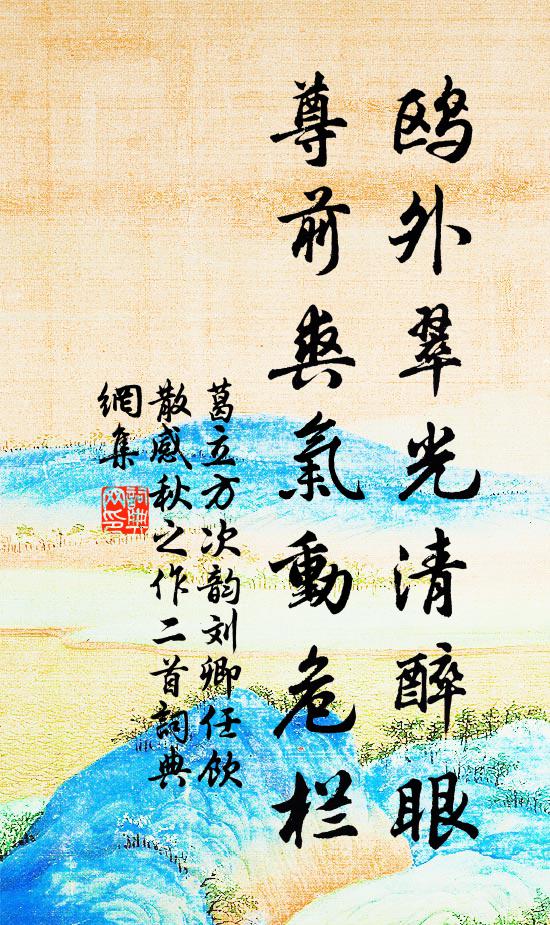 鸥外翠光清醉眼
尊前爽氣動危栏
葛立方次韵刘卿任饮
散感秋之作二首詞典
網集
詞典
网印